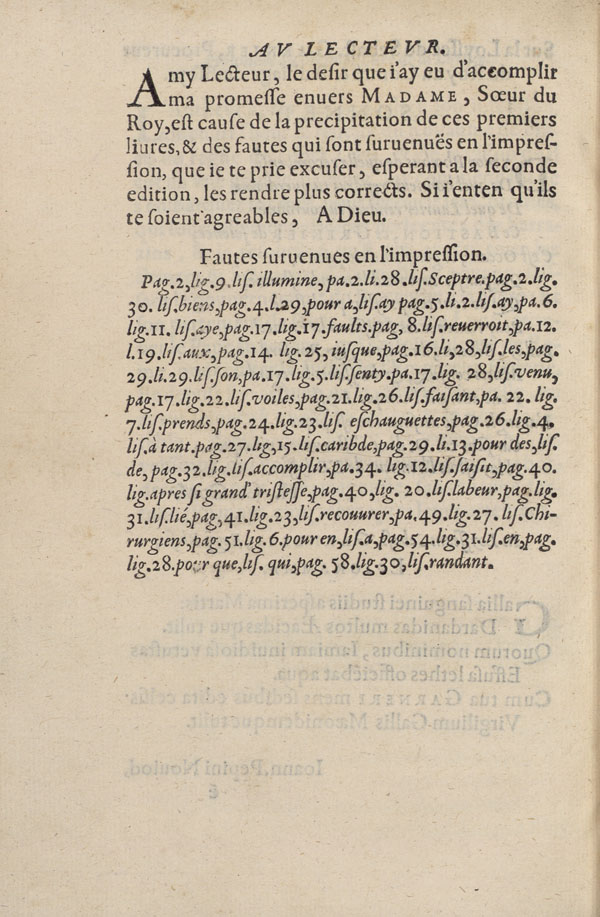 AV LECTEVR.
Amy Lecteur, le desir que i'ay eu d'accomplir
ma promesse enuers MADAME, Sœur du
Roy, est cause de la precipitation de ces premiers
liures, & des fautes qui sont suruenuës en l'impres-
sion, que ie te prie excuser, esperant a la seconde
edition, les rendre plus corrects. Si i'enten qu'ils
te soient agreables, A Dieu.
Fautes suruenues en l'impression.
Pag.2, lig.9. lis. illumine, pa.2.li.28.lis.Sceptre.pag.2.lig.
30. lis.biens, pag.4.l.29, pour a, lis.ay pag.5.li.2.lis.ay, pa.6.
lig.11. lis.aye, pag.17.lig.17.faults.pag, 8.lis.reuerroit, pa.12.
l.19.lis.aux, pag.14. lig.25, iusque, pag.16.li, 28, lis.les, pag.
29.li.29.lis.son, pa.17.lig.5.lis.senty.pa.17.lig. 28, lis.venu,
pag.17.lig.22.lis.voiles, pag.21.lig.26.lis.faisant, pa. 22. lig.
7.lis.prends, pag.24.lig.23.lis. eschauguettes, pag.26.lig.4.
lis.à tant.pag.27.lig, 15.lis.caribde, pag.29.li.13.pour des, lis.
de, pag.32.lig.lis.accomplir, pa.34. lig.12.lis.saisit, pag.40.
lig.apres si grand' tristesse, pag.40, lig. 20.lis.labeur, pag.lig.
31.lis.lié, pag, 41.lig.23, lis.recouurer, pa.49.lig.27. lis.Chi-
rurgiens, pag.51.lig.6.pour en, lis.a, pag.54.lig.31.lis.en, pag.
lig.28.pour que, lis. qui, pag. 58.lig.30, lis.randant.